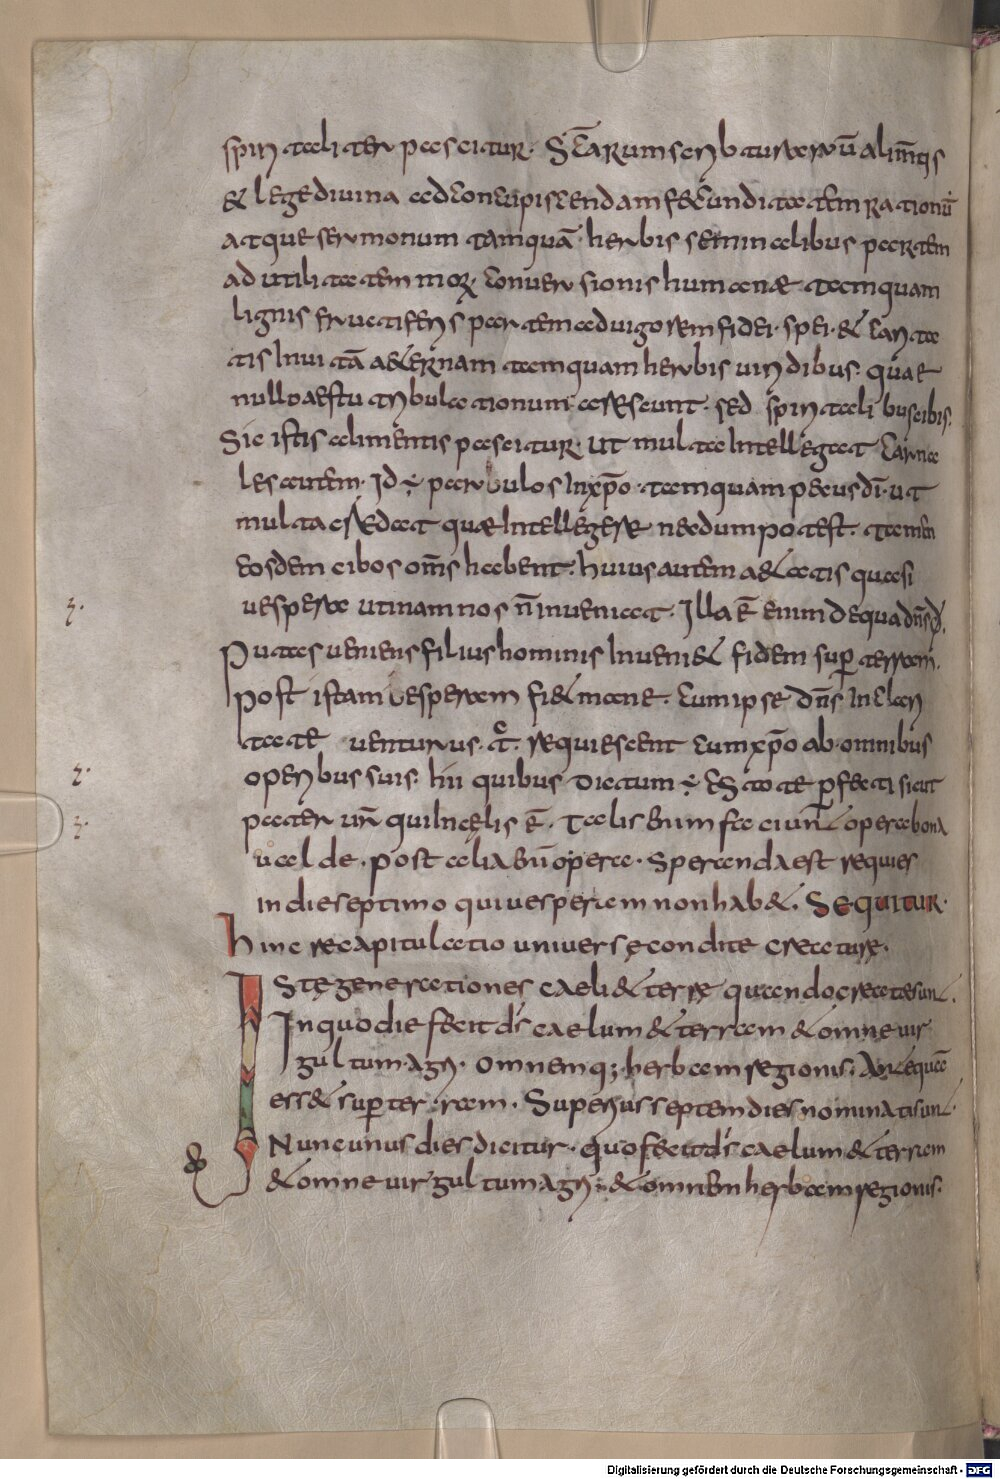 spiritaliter pascitur. Scarum scripturarū alimtis
& lege diuina ad concupiscendam fecunditatem rationū
atque sermonum tamquā herbis seminalibus partem
ad utilitatem morꝝ conuersionis humanae tamquam
lignis fructiferis partem ad uigorem fidei. spei. & carita
tis in uitā aeternam tamquam herbis uiridibus. quae
nullo aestu tribulationum arescunt. sed spiritalibus cibis.
Sic istis alimentis pascitur. ut multa intellegat carna
les autem. Id ÷ paruulos in xpo. tamquam pecus di. ut
multa credat quae intellegere necdum potest. tamen
eosdem cibos oms habent. huius autem aetatis quasi
uespera utinam nos ñ inueniat. Illa ē enim de qua dns d.
Putas ueniens filius hominis inueni& fidem super terram.
Post istam uesperam fi& mane. cum ipse dns in clari
tate uenturus. t̄. requiescent cum xpo ab omnibus
operibus suis. hii quibus dictum ÷ Estote perfecti sicut
pater ur̄ qui in cęlis ē. Talis enim faciunt opera bona
ualde. post talia enī opera. speranda est requies
in die septimo qui uesperam non hab&. Sequitur.
hinc recapitulatio uniuersę condite creaturę.
Istę generationes caeli & terrę quando creatae sunt.
In quo die fecit ds caelum & terram & omne uir
gultum agri. omnemq; herbam regionis. Antequā
ess& super terram. Superius septem dies nominati sunt.
Nunc unus dies dicitur. quo fecit ds caelum & terram
& omne uirgultum agri. & omnem herbam regionis.
Digitalisierung gefördert durch die Deutsche Forschungsgemeinschaft - DFG